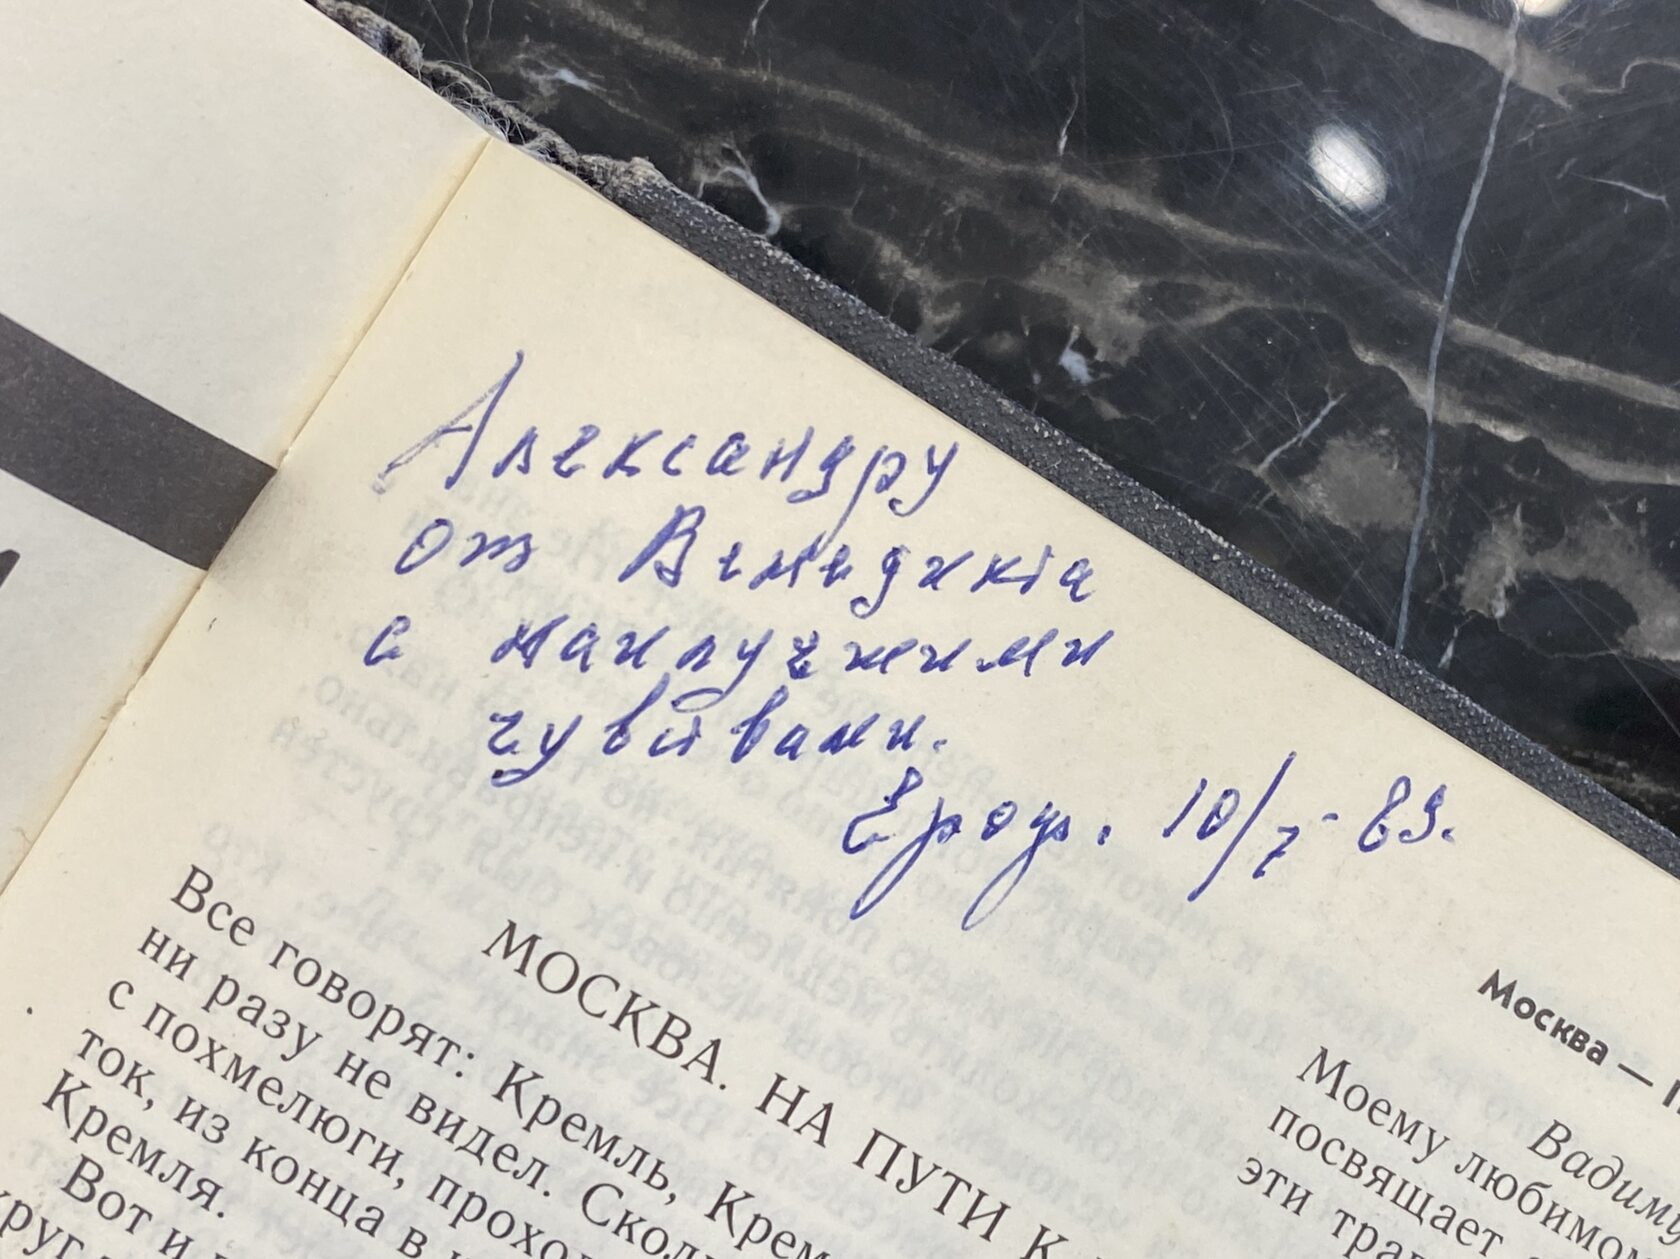 Александру
от Венедикта
с наилучшими
чувствами.
Ероф. 10/7-89.
Москва —
Вадиму
Моему любимо
посвящает
эти
МОСКВА. НА ПУТИ К
Все говорят: Кремль, Крем
ни разу не видел.
с похмелюги,
ток, из конца в
Кремля.
Вот и
круг